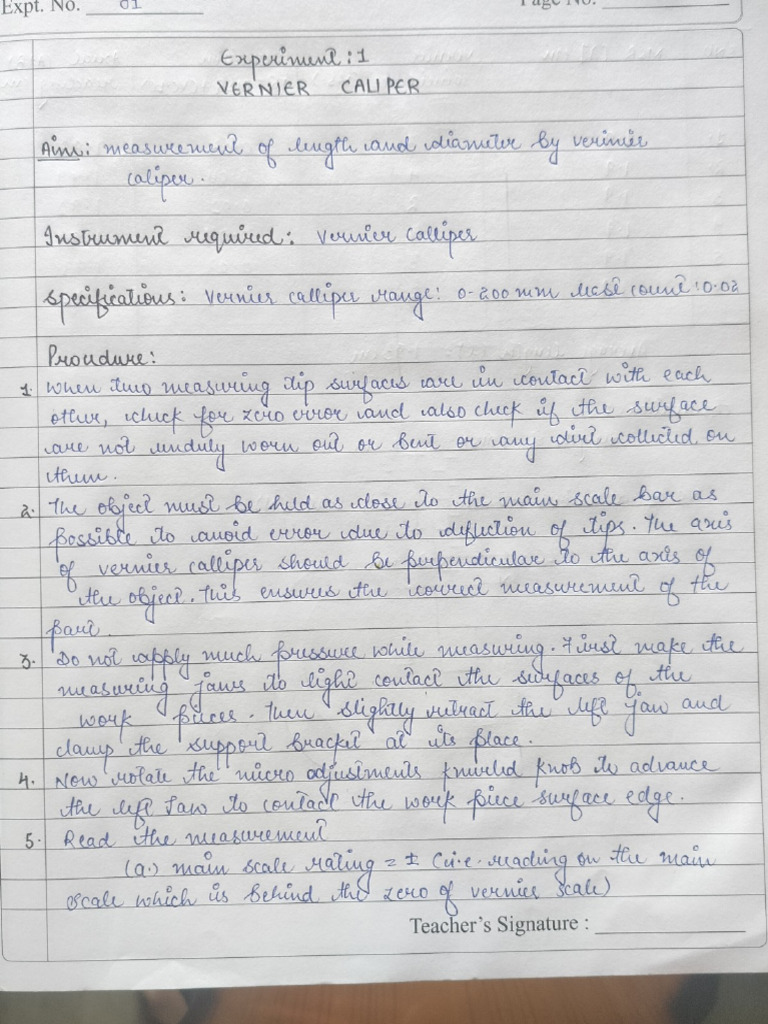 Expt. No. 01 Page No.
Experiment: 1
VERNIER CALIPER
Aim: measurement of length and diameter by verinier
caliper.
Instrument required: Vernier Calliper
Specifications: Vernier calliper range: 0-200 mm least count: 0.02
Procudure:
1. When two measuring tip surfaces are in contact with each
other, check for zero error and also check if the surface
are not unduly worn out or bent or any dirt collected on
them.
2. The object must be held as close to the main scale bar as
possible to avoid error due to deflection of tips. The axis
of vernier calliper should be perpendicular to the axis of
the object. This ensures the correct measurement of the
part.
3. Do not apply much pressure while measuring. First make the
measuring jaws to light contact the surfaces of the
work pieces. Then slightly retract the left jaw and
clamp the support bracket at its place.
4. Now rotate the micro adjustments knurled knob to advance
the left Jaw to contact the work piece surface edge.
5. Read the measurement
(a.) main scale rating = ± (i.e. reading on the main
scale which is behind the zero of vernier scale)
Teacher's Signature :